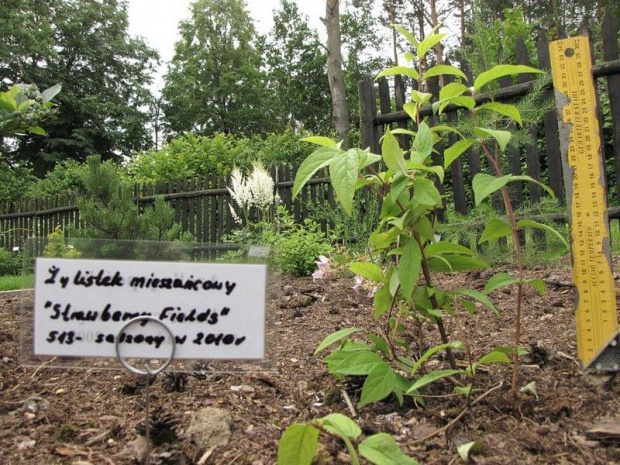 Żylistek mieszańcowy
"Strawberry Fields"
513- sadzony w 2010r